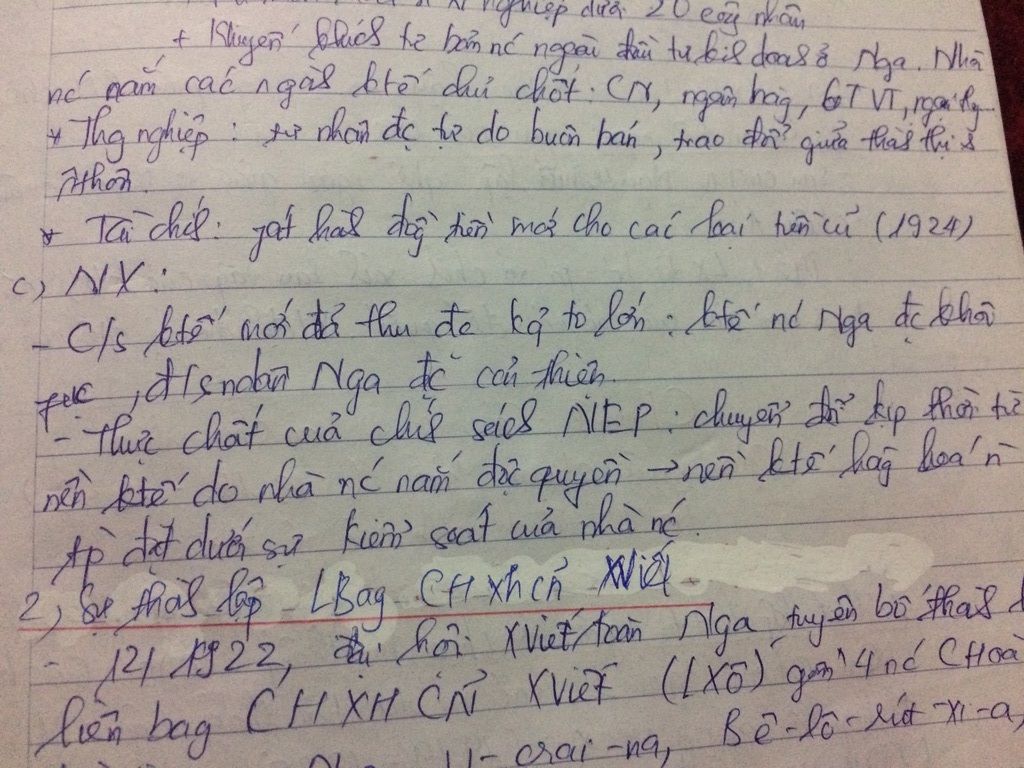 N nghiệp dưới 20 công nhân
+ Khuyến khích tư bản nc ngoài đầu tư kih doah ở Nga. Nhà
nc nắm các ngàh ktế chủ chốt: CN, ngân hàg, GTVT, ngoại
* Thg nghiệp: tư nhân đc tự do buôn bán, trao đổi giữa thàh thị &
nthôn.
* Tài chíh: pát hàh đồg tiền mới cho các loại tiền cũ (1924)
c) NX:
- C/s ktế mới đã thu đc kq to lớn: ktế nc Nga đc khôi
phục, đ/s ndân Nga đc cải thiện.
- Thực chất của chíh sách NEP: chuyển đổi kịp thời từ
nền ktế do nhà nc nắm độc quyền → nền ktế hàg hoá n`
tp` đặt dưới sự kiểm soát của nhà nc.
2, Sự thàh lập LBag CHXHCN XViết
- 12/1922, đại hội XViết toàn Nga tuyên bố thàh
liên bag CHXHCN XViết (LXô) gồm 4 nc CHoà
U-crai-na, Bê-lô-rút-xi-a,